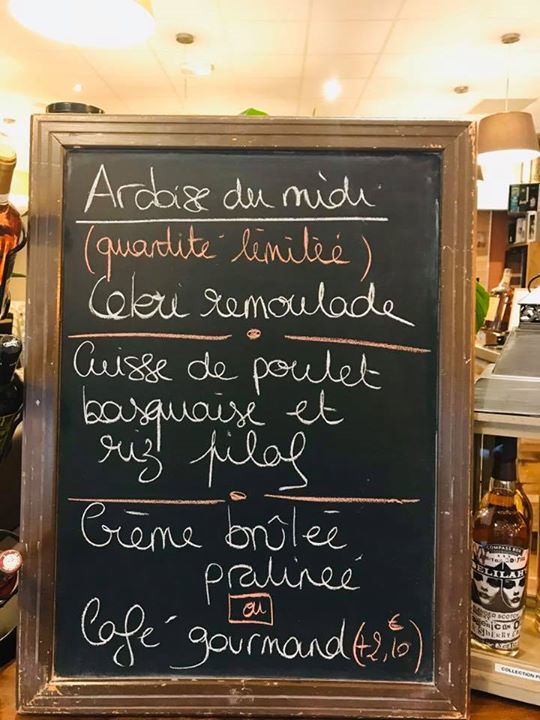 Ardoise du midi
(quantité limitée)
Celeri remoulade
Cuisse de poulet
basquaise et
riz pilaf
Crème brûlée
pralineé
ou
Café gourmand (+2,10€)
COMPASS BOX
DELILAH
COLLECTION